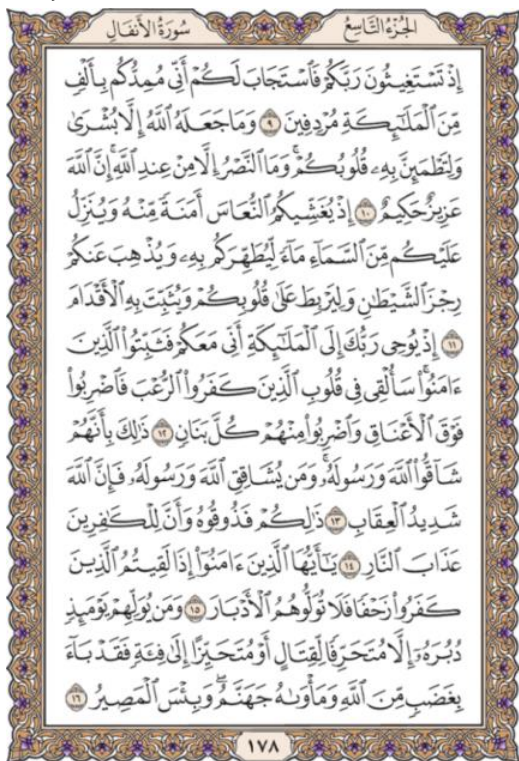 الجزء التاسع
سورة الأنفال
إِذْ تَسْتَغِيثُونَ رَبَّكُمْ فَٱسْتَجَابَ لَكُمْ أَنِّى مُمِدُّكُم بِأَلْفٍ
مِّنَ ٱلْمَلَٰٓئِكَةِ مُرْدِفِينَ ٩ وَمَا جَعَلَهُ ٱللَّهُ إِلَّا بُشْرَىٰ
وَلِتَطْمَئِنَّ بِهِۦ قُلُوبُكُمْ ۚ وَمَا ٱلنَّصْرُ إِلَّا مِنْ عِندِ ٱللَّهِ ۚ إِنَّ ٱللَّهَ
عَزِيزٌ حَكِيمٌ ١٠ إِذْ يُغَشِّيكُمُ ٱلنُّعَاسَ أَمَنَةً مِّنْهُ وَيُنَزِّلُ
عَلَيْكُم مِّنَ ٱلسَّمَآءِ مَآءً لِّيُطَهِّرَكُم بِهِۦ وَيُذْهِبَ عَنكُمْ
رِجْزَ ٱلشَّيْطَٰنِ وَلِيَرْبِطَ عَلَىٰ قُلُوبِكُمْ وَيُثَبِّتَ بِهِ ٱلْأَقْدَامَ
١١ إِذْ يُوحِى رَبُّكَ إِلَى ٱلْمَلَٰٓئِكَةِ أَنِّى مَعَكُمْ فَثَبِّتُوا۟ ٱلَّذِينَ
ءَامَنُوا۟ ۚ سَأُلْقِى فِى قُلُوبِ ٱلَّذِينَ كَفَرُوا۟ ٱلرُّعْبَ فَٱضْرِبُوا۟
فَوْقَ ٱلْأَعْنَاقِ وَٱضْرِبُوا۟ مِنْهُمْ كُلَّ بَنَانٍ ١٢ ذَٰلِكَ بِأَنَّهُمْ
شَآقُّوا۟ ٱللَّهَ وَرَسُولَهُۥ ۚ وَمَن يُشَاقِقِ ٱللَّهَ وَرَسُولَهُۥ فَإِنَّ ٱللَّهَ
شَدِيدُ ٱلْعِقَابِ ١٣ ذَٰلِكُمْ فَذُوقُوهُ وَأَنَّ لِلْكَٰفِرِينَ
عَذَابَ ٱلنَّارِ ١٤ يَٰٓأَيُّهَا ٱلَّذِينَ ءَامَنُوٓا۟ إِذَا لَقِيتُمُ ٱلَّذِينَ
كَفَرُوا۟ زَحْفًا فَلَا تُوَلُّوهُمُ ٱلْأَدْبَارَ ١٥ وَمَن يُوَلِّهِمْ يَوْمَئِذٍ
دُبُرَهُۥٓ إِلَّا مُتَحَرِّفًا لِّقِتَالٍ أَوْ مُتَحَيِّزًا إِلَىٰ فِئَةٍ فَقَدْ بَآءَ
بِغَضَبٍ مِّنَ ٱللَّهِ وَمَأْوَىٰهُ جَهَنَّمُ ۖ وَبِئْسَ ٱلْمَصِيرُ ١٦
١٧٨